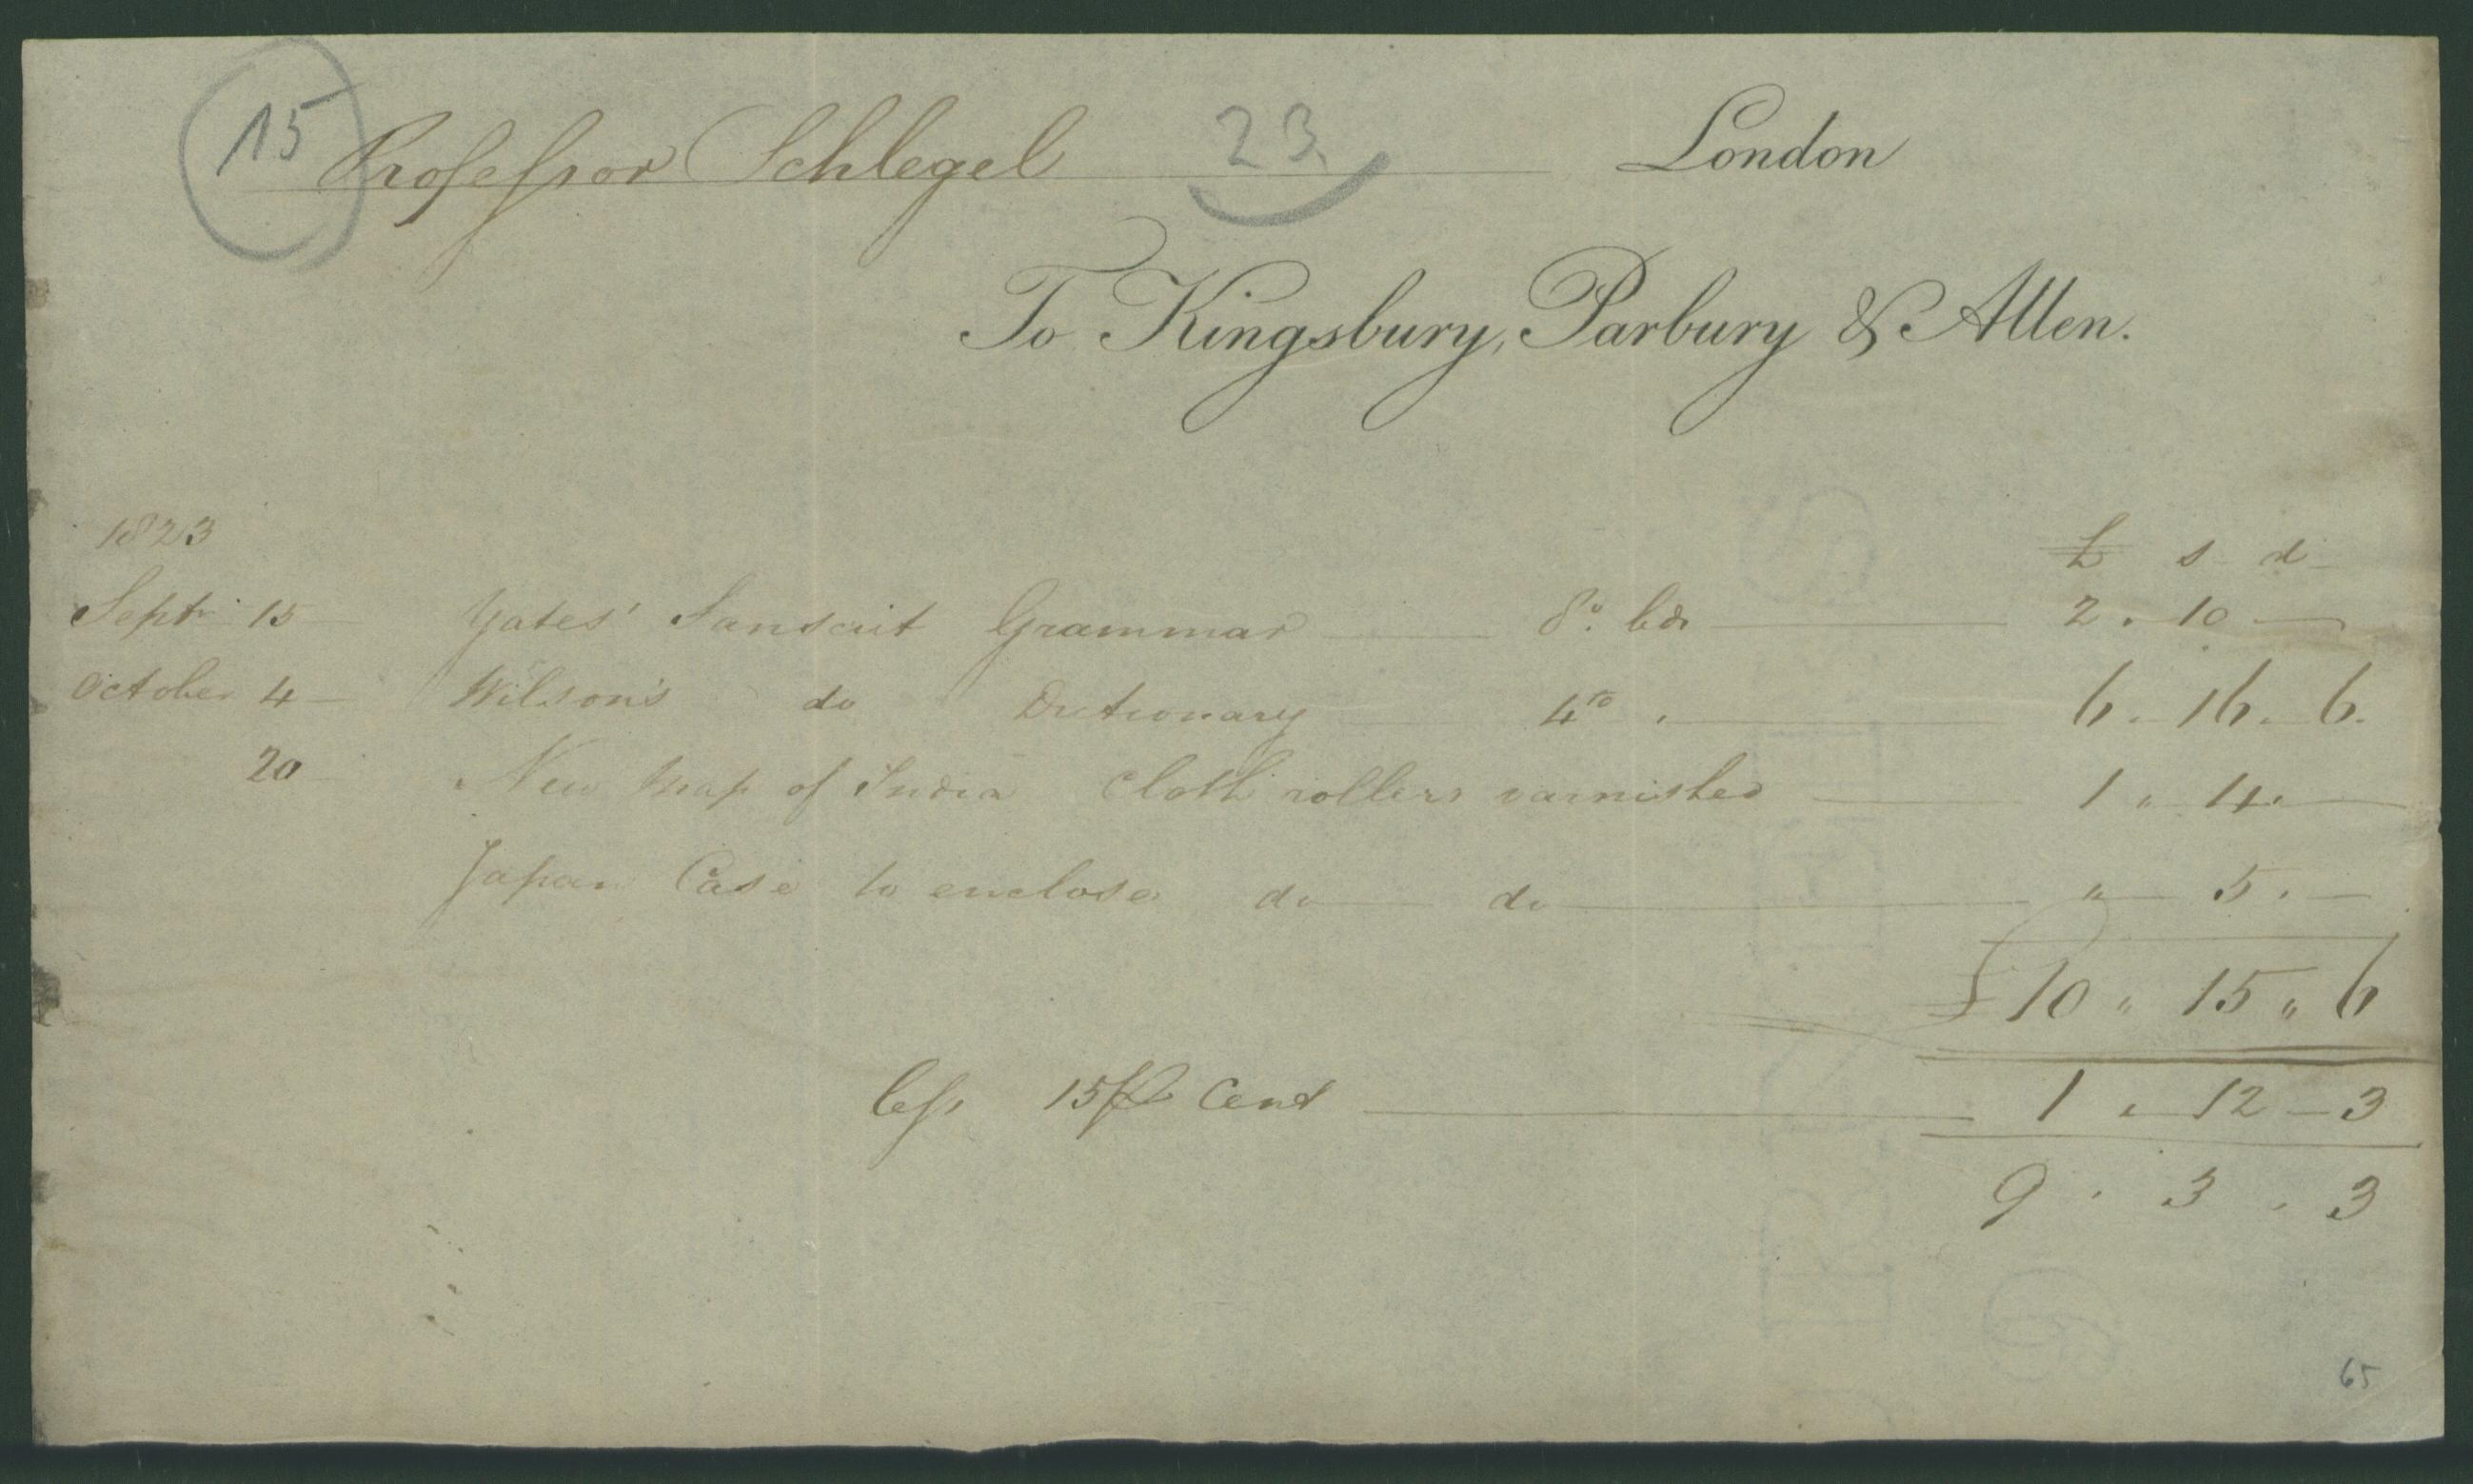 15 Professor Schlegel 23. London
To Kingsbury, Parbury & Allen.
1823
£ s d
Septr 15 Yates' Sanscrit Grammar 8o. bds 2 . 10 —
October 4 — Wilson's do Dictionary 4to . 6 . 16 . 6.
20 New Map of India Cloth rollers varnished 1 " 14 . —
Japan Case to enclose do do " 5 . —
£10 " 15 " 6
less 15 ⅌ Cent 1 . 12 — 3
9 . 3 . 3
65